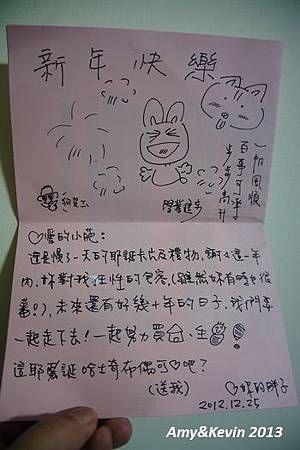 新年快樂
一帆風順
百事可樂
步步高升
學業進步
♡愛的小葩:
還是慢了一天的耶誕卡片及禮物,謝謝這一年
內,妳對我任性的包容,(雖然妳有時也很
番!),未來還有好幾十年的日子,我們要
一起走下去!一起努力買台、生
這耶聖誕哈士奇布偶可♡吧?
(送我)
♡妳的胖子
2012.12.25
Amy&Kevin 2013